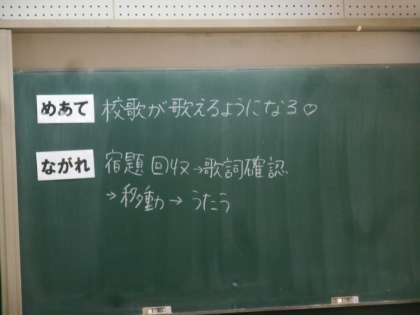 めあて 校歌が歌えるようになる♡
ながれ 宿題回収→歌詞確認
→移動→うたう